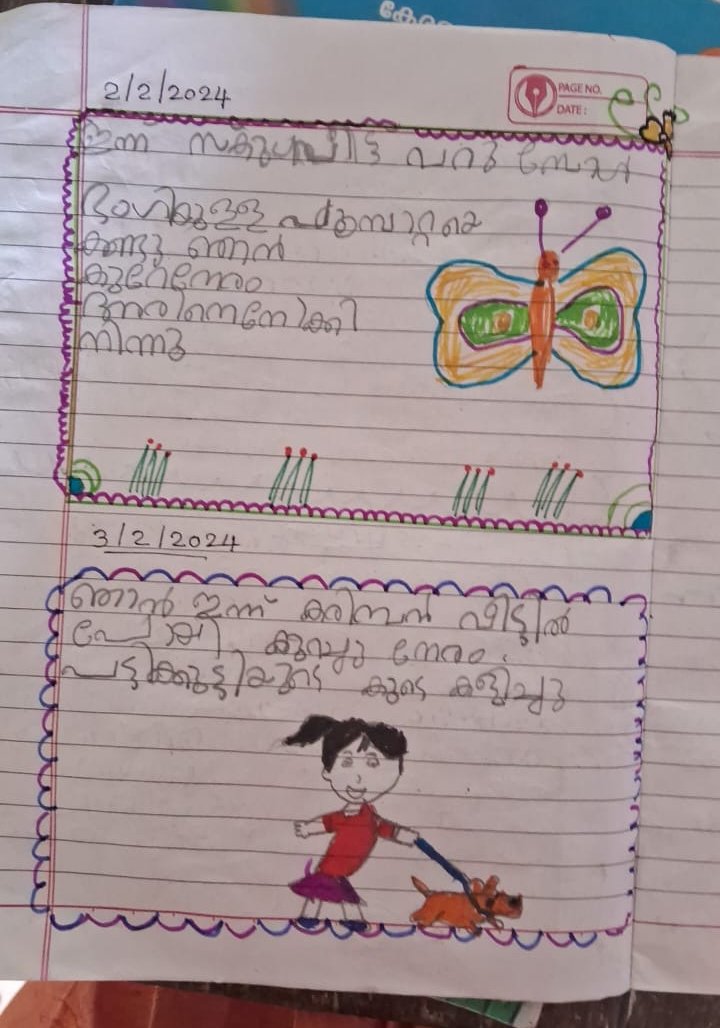 കേരള
2/2/2024
PAGE NO.
DATE:
ഇന്ന് സ്കൂൾവിട്ട് വന്നു
ഭംഗിയുള്ള പൂമ്പാറ്റയെ
കണ്ടു ഞാൻ
കുറേനേരം
അതിനെനോക്കി
നിന്നു
3/2/2024
ഞാൻ ഇന്ന് കരിമ്പൻ വീട്ടിൽ
പോയി കുറച്ചു നേരം.
പട്ടിക്കുട്ടിയുടെ കൂടെ കളിച്ചു